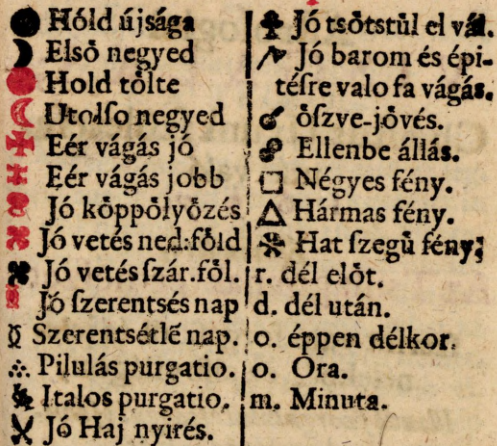 Hóld újsága
Elsö negyed
Hold tölte
Utolſo negyed
Eér vágás jó
Eér vágás jobb
Jó köppölyözés
Jó vetés ned:föld
Jó vetés ſzár.föl.
Jó ſzerentsés nap
Szerentsétlē nap.
Pilulás purgatio.
Italos purgatio.
Jó Haj nyirés.
Jó tsötstül el vál.
Jó barom és épi-
tésre valo fa vágás.
öſzve-jövés.
Ellenbe állás.
Négyes fény.
Hármas fény.
Hat ſzegü fény;
r. dél elöt.
d. dél után.
o. éppen délkor.
o. Ora.
m. Minuta.